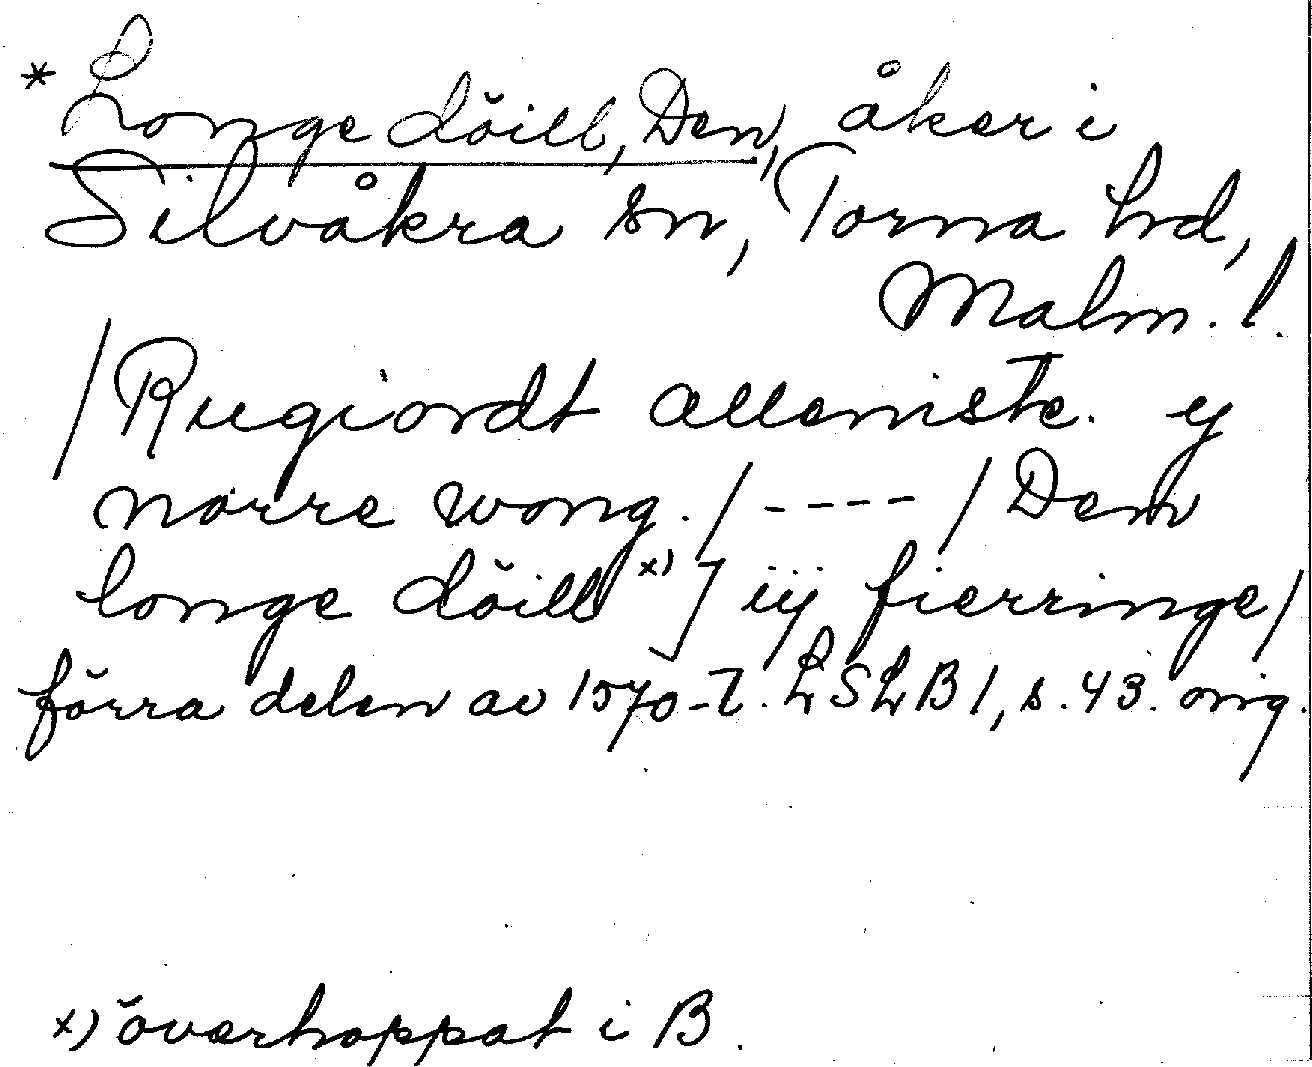 * Longe dŏill, Den, åker i
Silvåkra sn, Torna hd,
Malm. l.
/ Rugiordt allemste. y
norre wong. / ---- / Den
longe dŏill x) ] iij fierringe /
förra delen av 1570-t. LSLB1, s. 43. orig.
x) överhoppat i B.